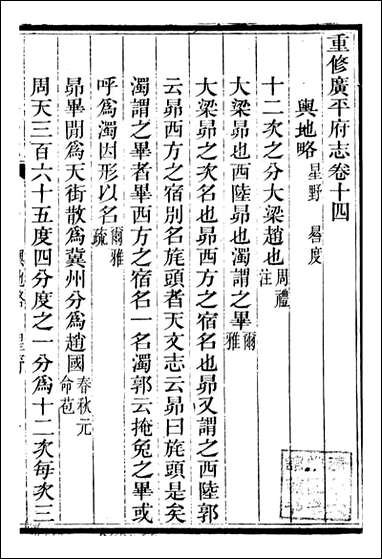 重修廣平府志卷十四
輿地略 星野 晷度
十二次之分大梁趙也 周禮注
大梁昴也西陸昴也濁謂之畢 爾雅
大梁昴之次名也昴西方之宿名也昴又謂之西陸郭
云昴西方之宿別名旄頭者天文志云昴曰旄頭是矣
濁謂之畢者畢西方之宿名一名濁郭云掩兔之畢或
呼為濁因形以名 爾雅疏
昴畢間為天街散為冀州分為趙國 春秋元命苞
周天三百六十五度四分度之一分為十二次每次三